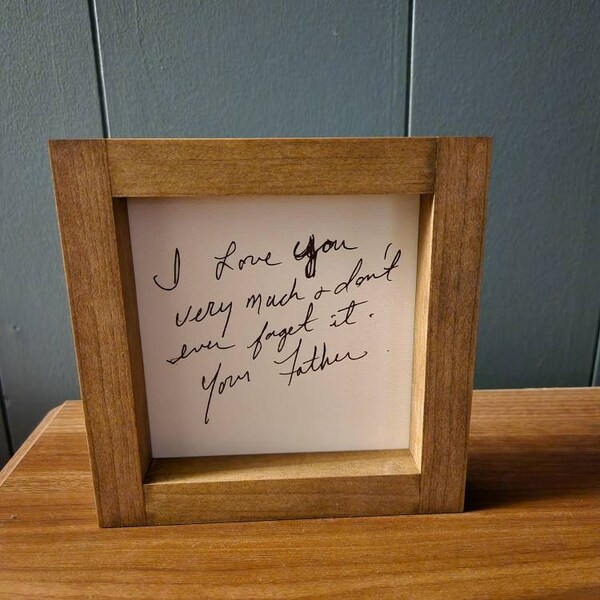 I Love you
very much & don't
ever forget it.
Your Father.